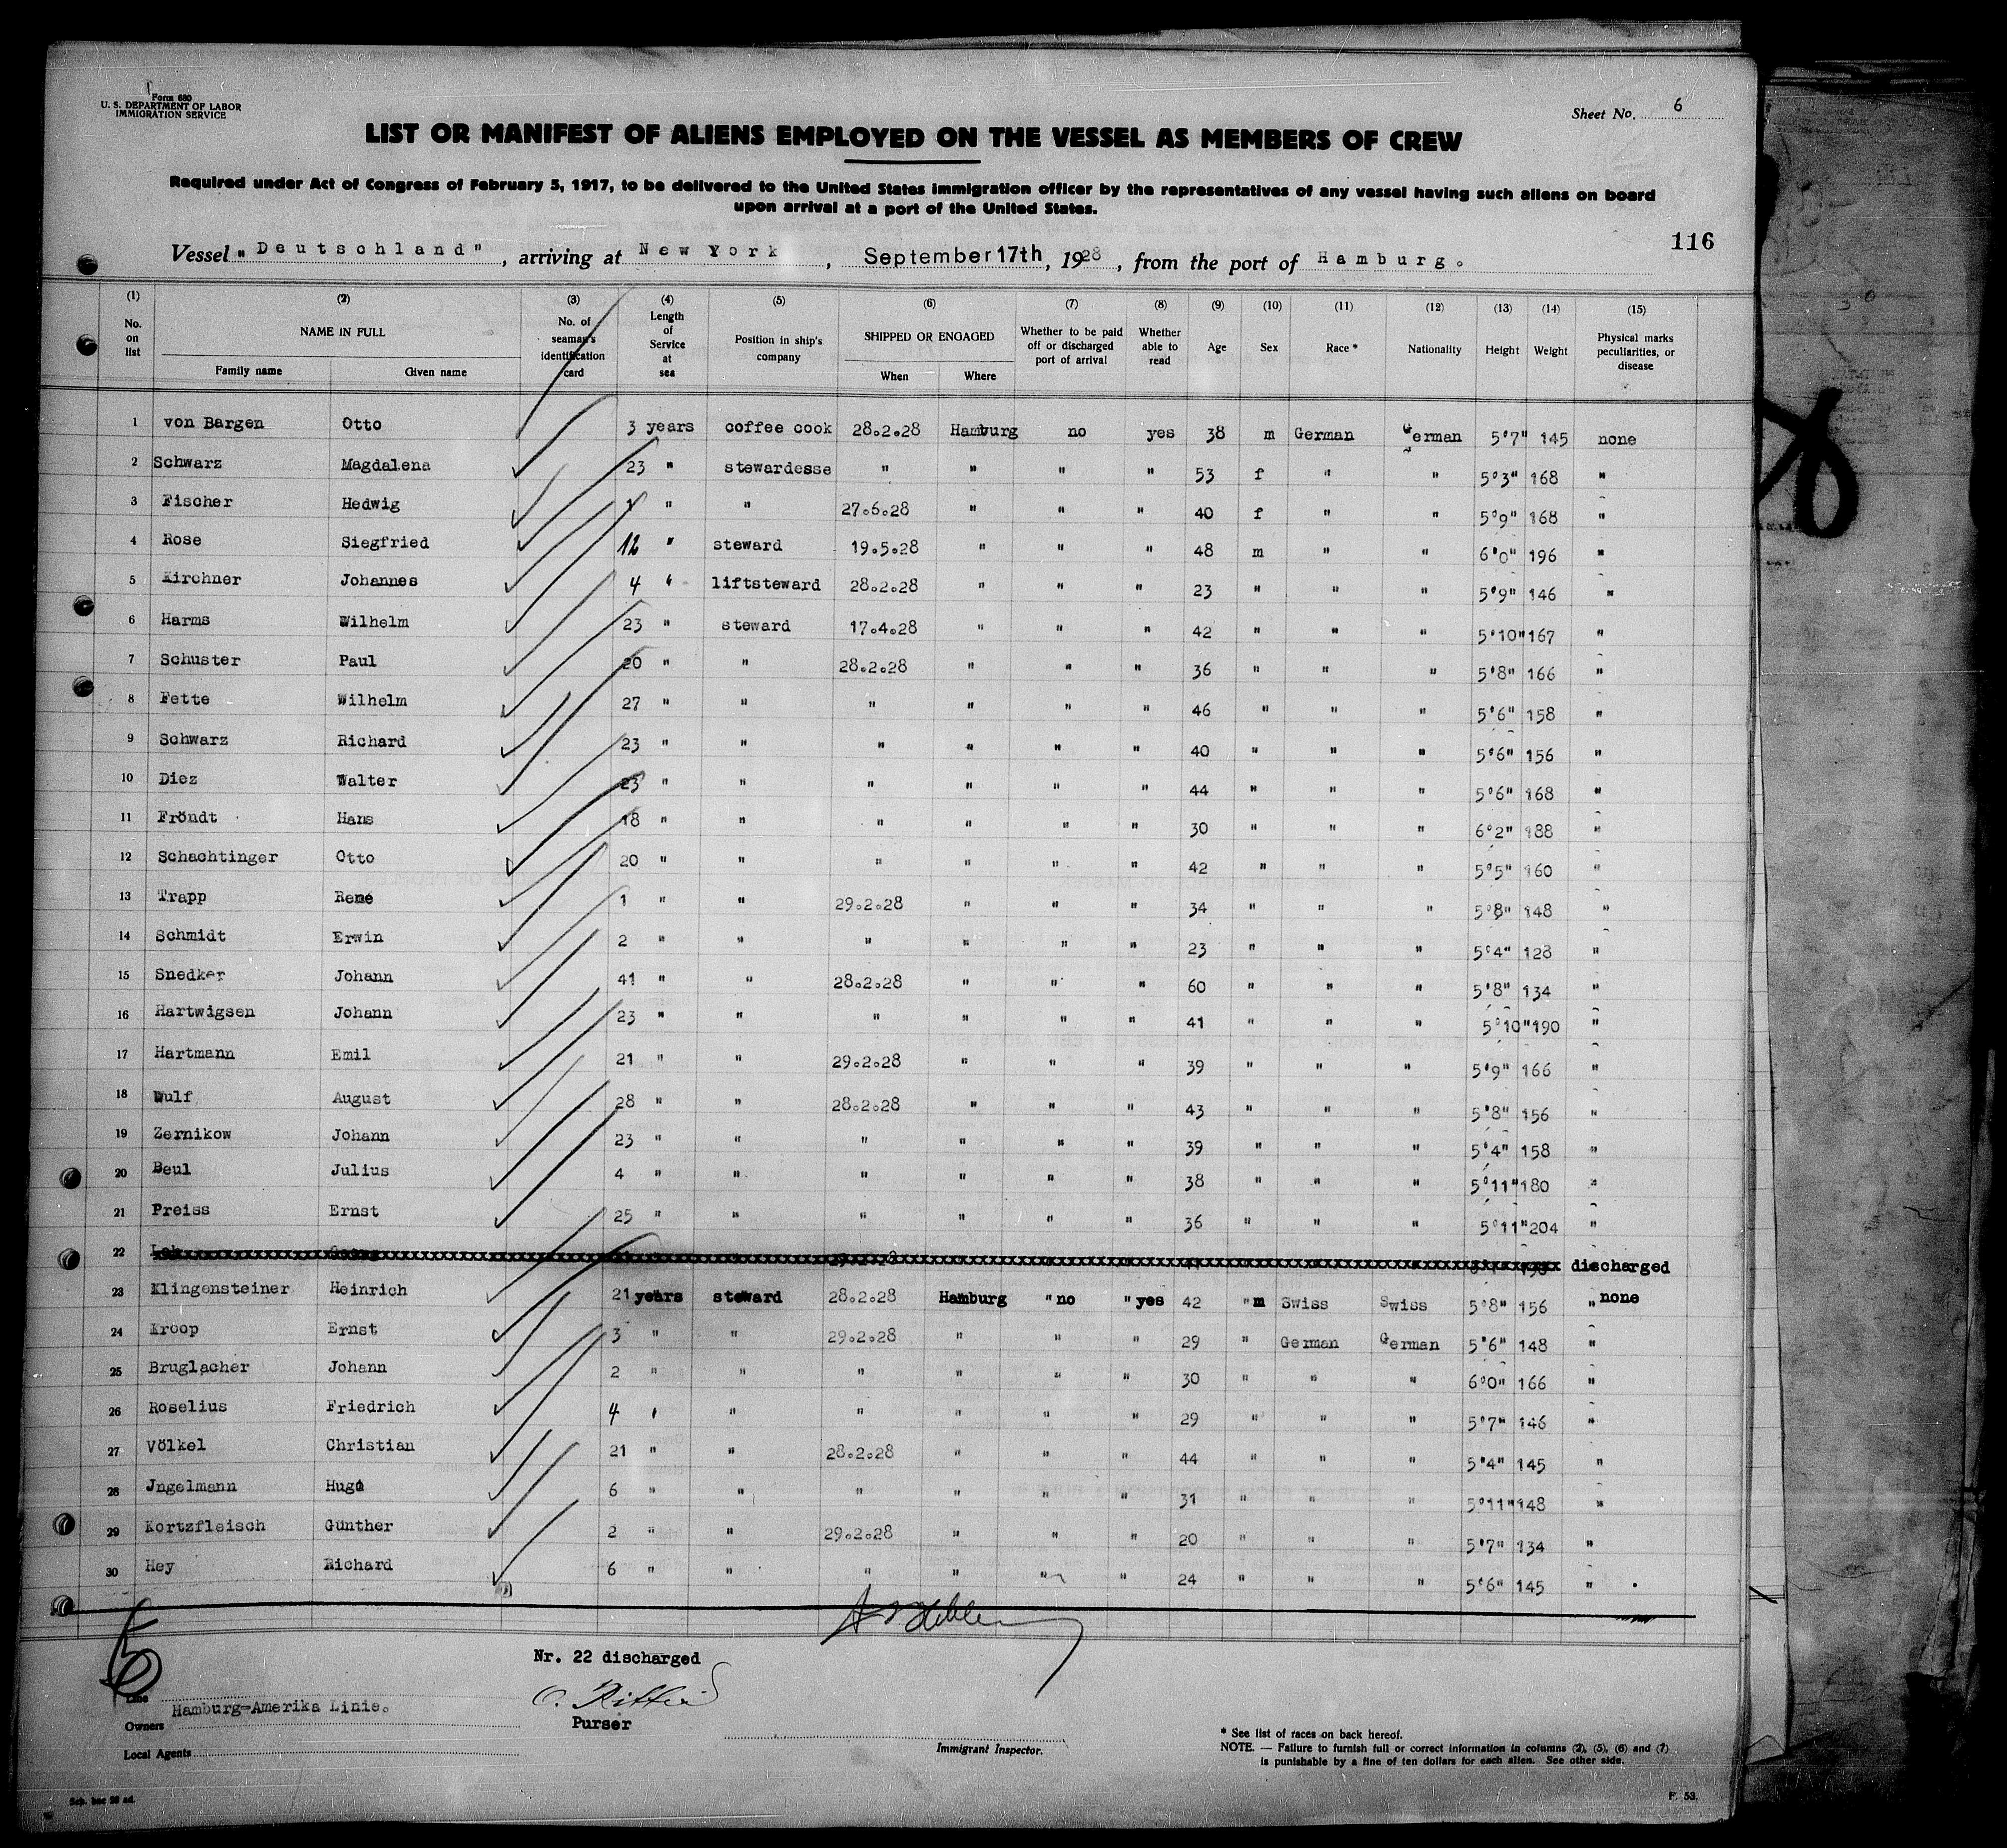 Form 680
U. S. DEPARTMENT OF LABOR
IMMIGRATION SERVICE
Sheet No. 6
LIST OR MANIFEST OF ALIENS EMPLOYED ON THE VESSEL AS MEMBERS OF CREW
Required under Act of Congress of February 5, 1917, to be delivered to the United States immigration officer by the representatives of any vessel having such aliens on board
upon arrival at a port of the United States.
116
Vessel "Deutschland", arriving at New York, September 17th, 1928, from the port of Hamburg.
(1) (2) (3) (4) (5) (6) (7) (8) (9) (10) (11) (12) (13) (14) (15)
No. on list NAME IN FULL Family name Given name No. of seaman's identification card Length of Service at sea Position in ship's company SHIPPED OR ENGAGED When Where Whether to be paid off or discharged port of arrival Whether able to read Age Sex Race * Nationality Height Weight Physical marks peculiarities, or disease
1 von Bargen Otto 3 years coffee cook 28.2.28 Hamburg no yes 38 m German German 5'7" 145 none
2 Schwarz Magdalena 23 " stewardesse " " " " 53 f " " 5'3" 168 "
3 Fischer Hedwig " " 27.6.28 " " " 40 f " " 5'9" 168 "
4 Rose Siegfried 12 " steward 19.5.28 " " " 48 m " " 6'0" 196 "
5 Kirchner Johannes 4 " liftsteward 28.2.28 " " " 23 " " " 5'9" 146 "
6 Harms Wilhelm 23 " steward 17.4.28 " " " 42 " " " 5'10" 167 "
7 Schuster Paul 20 " " 28.2.28 " " " 36 " " " 5'8" 166 "
8 Fette Wilhelm 27 " " " " " " 46 " " " 5'6" 158 "
9 Schwarz Richard 23 " " " " " " 40 " " " 5'6" 156 "
10 Diez Walter 23 " " " " " " 44 " " " 5'6" 168 "
11 Fröndt Hans 18 " " " " " " 30 " " " 6'2" 188 "
12 Schachtinger Otto 20 " " " " " " 42 " " " 5'5" 160 "
13 Trapp René 1 " " 29.2.28 " " " 34 " " " 5'8" 148 "
14 Schmidt Erwin 2 " " " " " " 23 " " " 5'4" 128 "
15 Snedker Johann 41 " " 28.2.28 " " " 60 " " " 5'8" 134 "
16 Hartwigsen Johann 23 " " " " " " 41 " " " 5'10" 190 "
17 Hartmann Emil 21 " " 29.2.28 " " " 39 " " " 5'9" 166 "
18 Wulf August 28 " " 28.2.28 " " " 43 " " " 5'8" 156 "
19 Zernikow Johann 23 " " " " " " 39 " " " 5'4" 158 "
20 Beul Julius 4 " " " " " " 38 " " " 5'11" 180 "
21 Preiss Ernst 25 " " " " " " 36 " " " 5'11" 204 "
22 discharged
23 Klingensteiner Heinrich 21 years steward 28.2.28 Hamburg " no " yes 42 " m Swiss Swiss 5'8" 156 " none
24 Kroop Ernst 3 " " 29.2.28 " " " 29 " German German 5'6" 148 "
25 Bruglacher Johann 2 " " " " " " 30 " " " 6'0" 166 "
26 Roselius Friedrich 4 " " " " " " 29 " " " 5'7" 146 "
27 Völkel Christian 21 " " 28.2.28 " " " 44 " " " 5'4" 145 "
28 Jngelmann Hugo 6 " " " " " " 31 " " " 5'11" 148 "
29 Kortzfleisch Günther 2 " " 29.2.28 " " " 20 " " " 5'7" 134 "
30 Hey Richard 6 " " " " " " 24 " " " 5'6" 145 "
Nr. 22 discharged
Purser
Line
Hamburg-Amerika Linie.
Owners
Local Agents
Immigrant Inspector.
* See list of races on back hereof.
NOTE. — Failure to furnish full or correct information in columns (2), (5), (6) and (7)
is punishable by a fine of ten dollars for each alien. See other side.
F. 53.